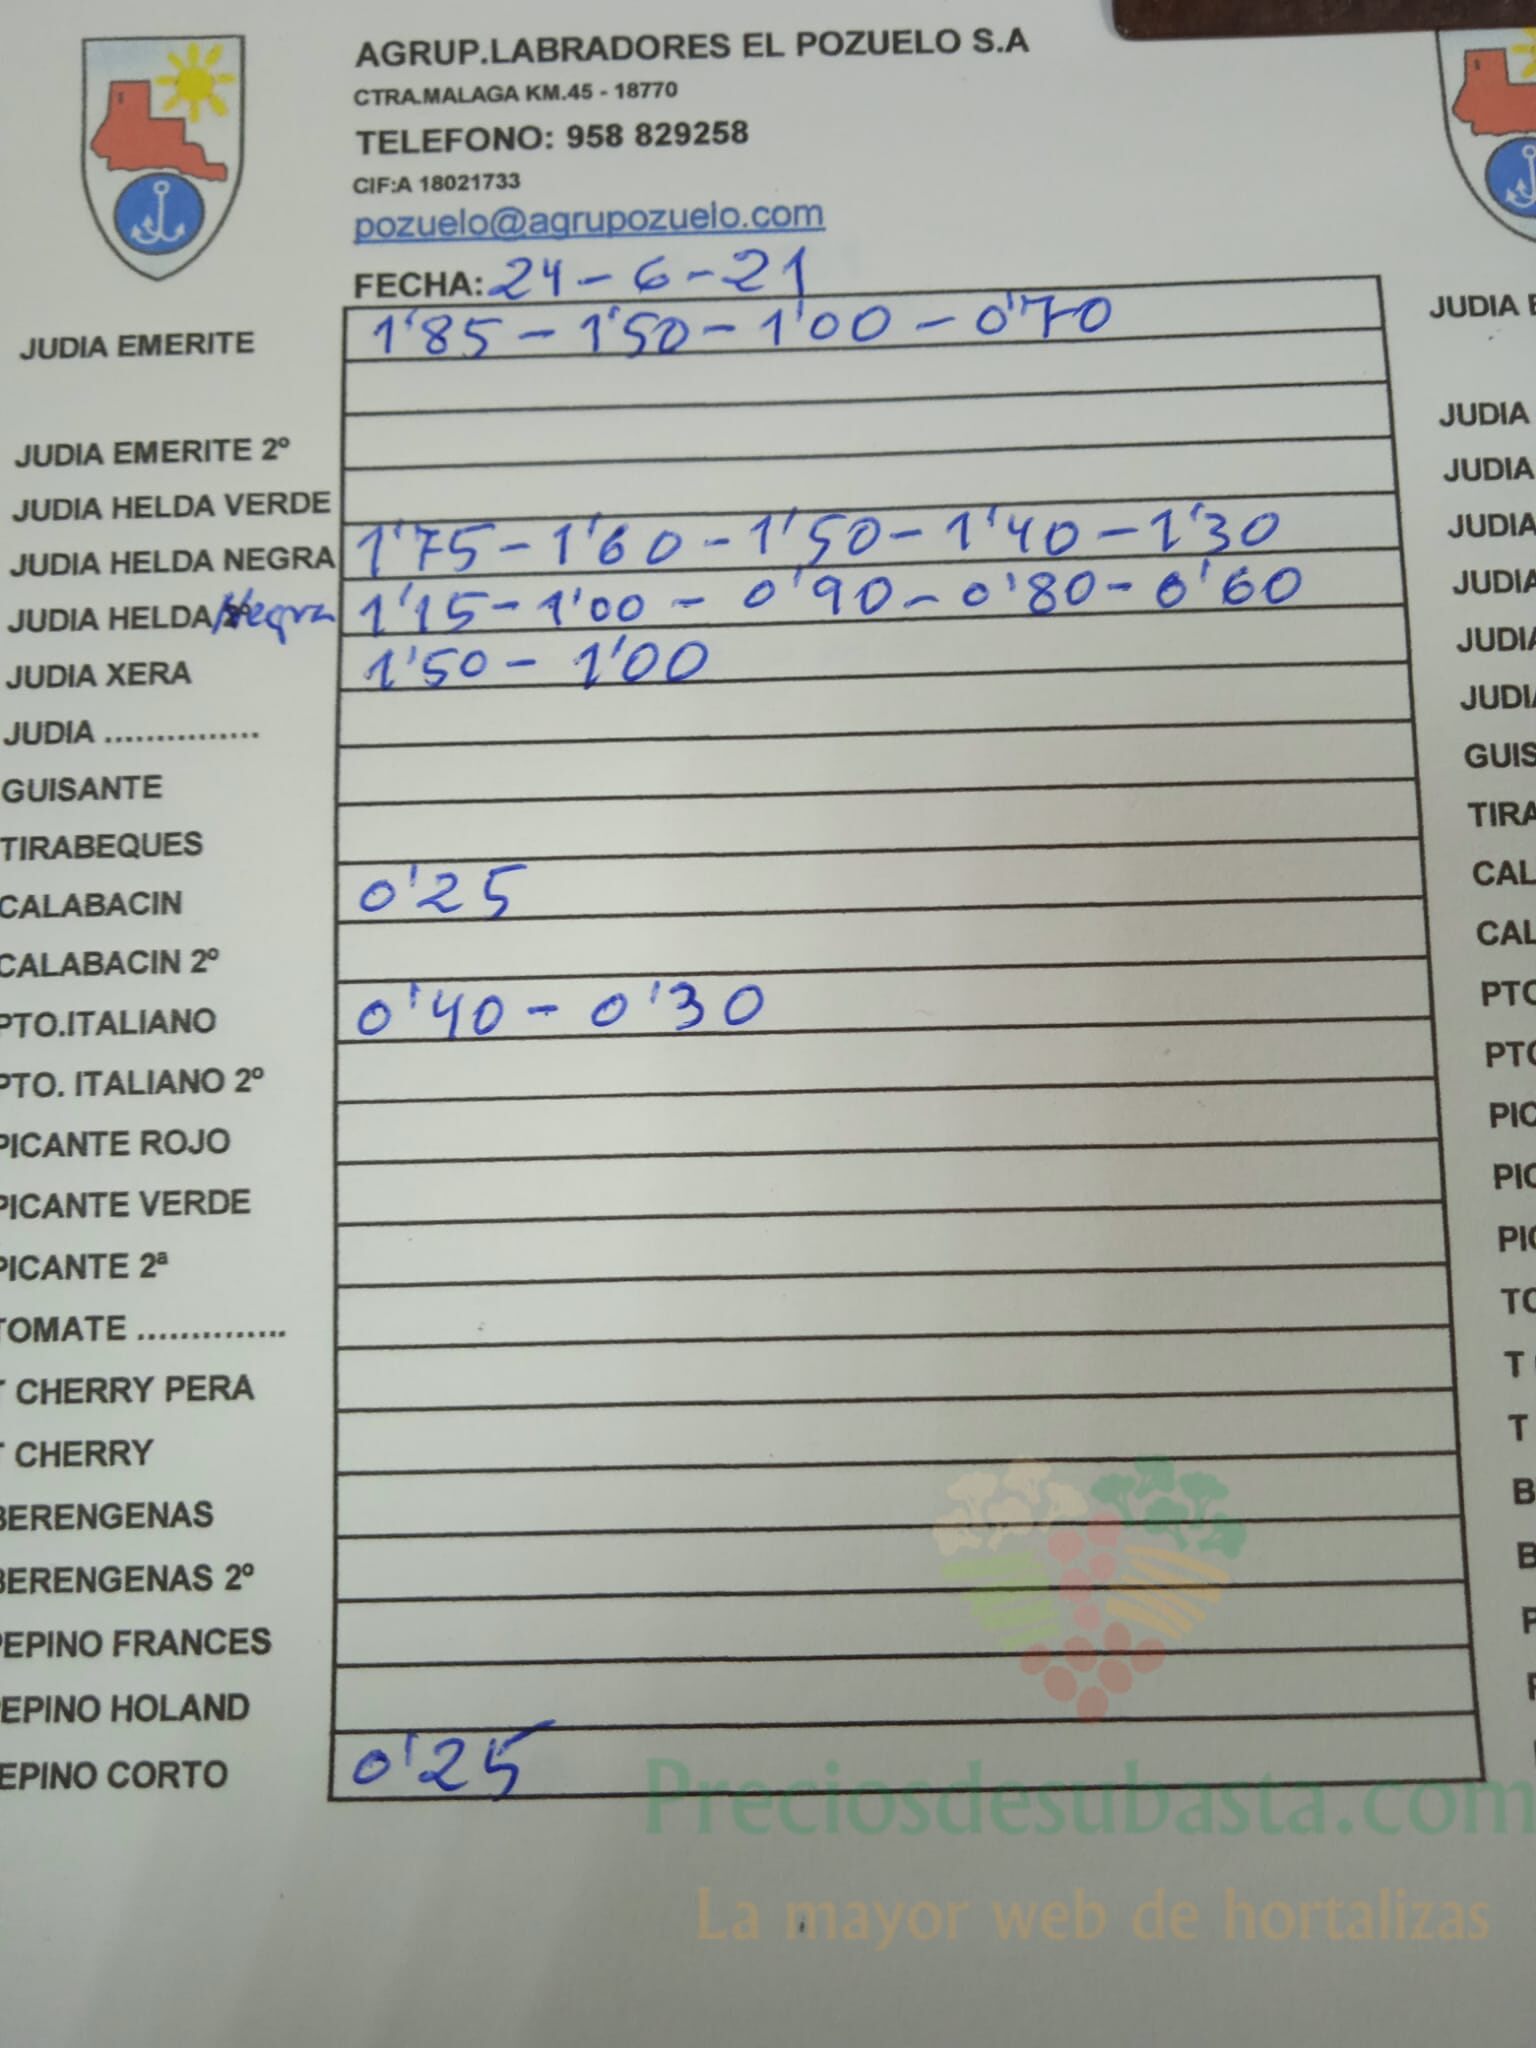 AGRUP.LABRADORES EL POZUELO S.A
CTRA.MALAGA KM.45 - 18770
TELEFONO: 958 829258
CIF:A 18021733
pozuelo@agrupozuelo.com
FECHA: 24-6-21
JUDIA EMERITE 1'85 - 1'50 - 1'00 - 0'70
JUDIA EMERITE 2º
JUDIA HELDA VERDE
JUDIA HELDA NEGRA 1'75 - 1'60 - 1'50 - 1'40 - 1'30
JUDIA HELDA Negra 1'15 - 1'00 - 0'90 - 0'80 - 0'60
JUDIA XERA 1'50 - 1'00
JUDIA ...............
GUISANTE
TIRABEQUES
CALABACIN 0'25
CALABACIN 2º
PTO.ITALIANO 0'40 - 0'30
PTO. ITALIANO 2º
PICANTE ROJO
PICANTE VERDE
PICANTE 2ª
TOMATE ..............
T CHERRY PERA
T CHERRY
BERENGENAS
BERENGENAS 2º
PEPINO FRANCES
PEPINO HOLAND
EPINO CORTO 0'25
Preciosdesubasta.com
La mayor web de hortalizas
JUDIA E
JUDIA
JUDIA
JUDIA
JUDIA
JUDIA
JUDIA
GUIS
TIRA
CAL
CAL
PTO
PTO
PIC
PIC
PIC
TO
T
T
B
B
P